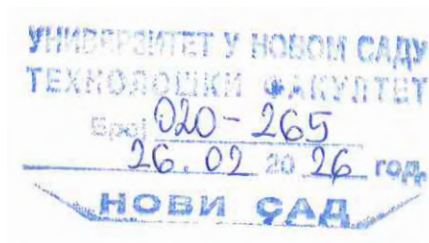 УНИВЕРЗИТЕТ У НОВОМ САДУ
ТЕХНОЛОШКИ ФАКУЛТЕТ
Број 020-265
26. 02 20 26 год.
НОВИ САД